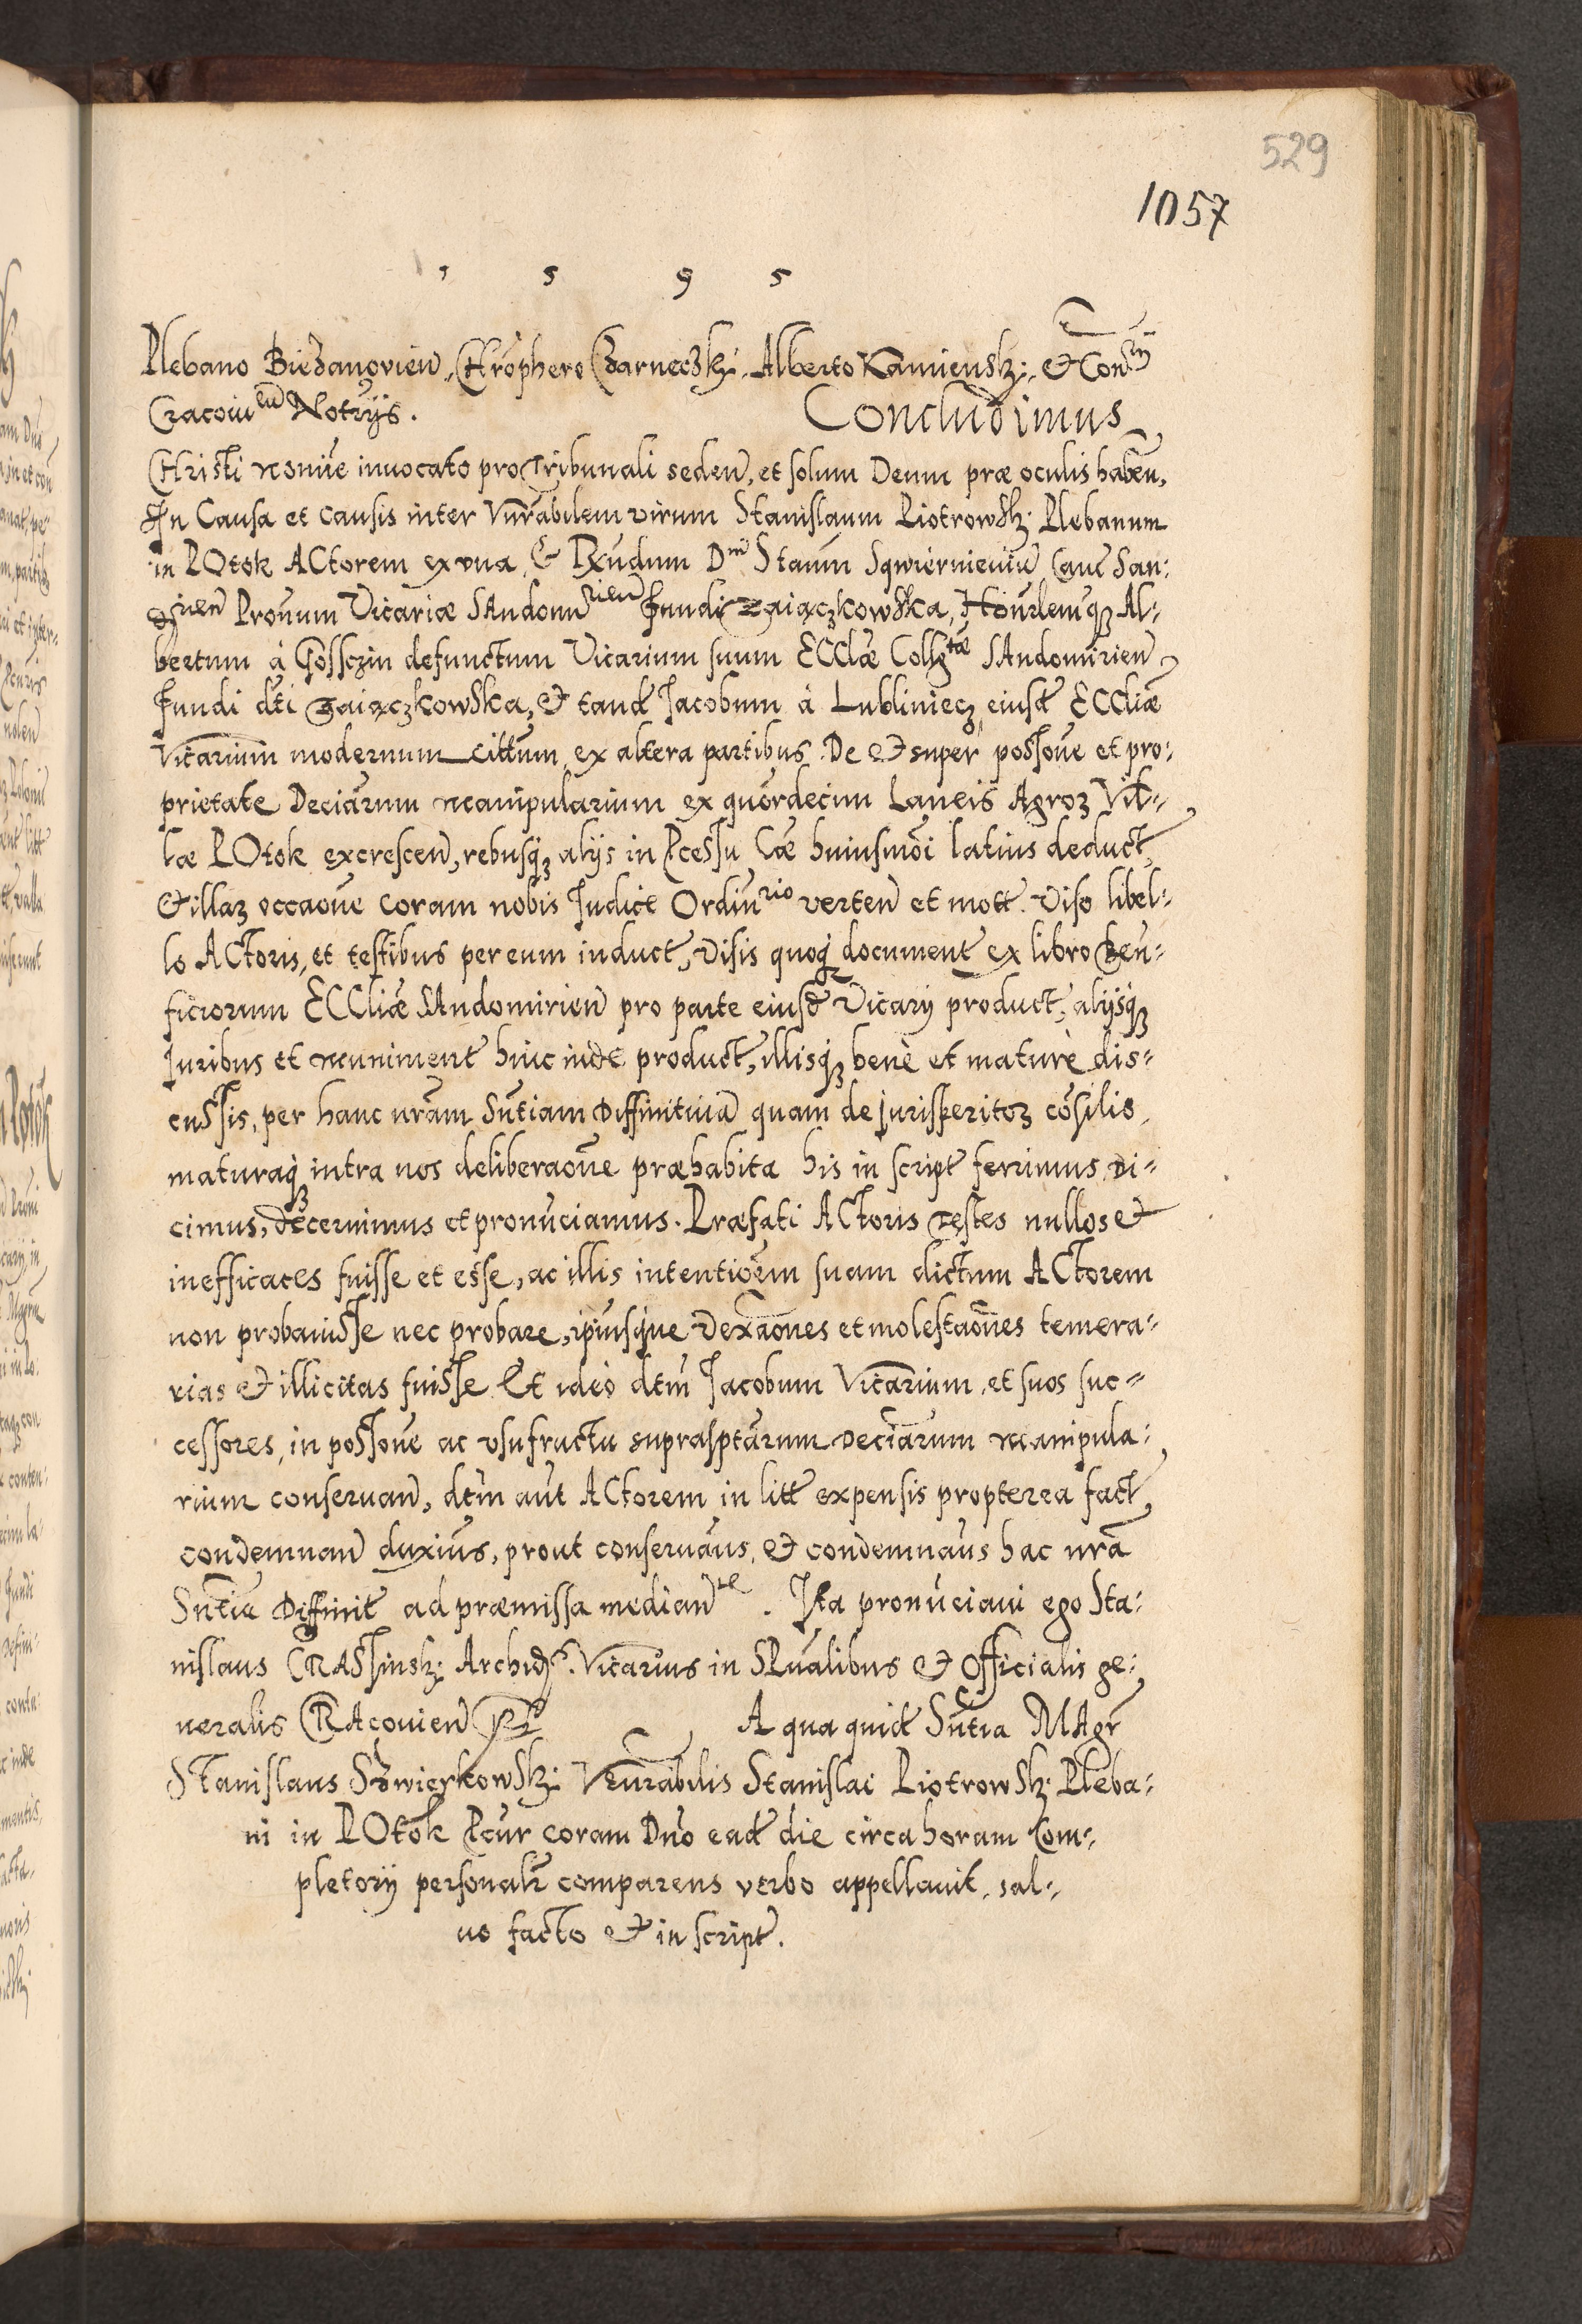 529
1057
1 5 9 5
Plebano Biezanovien, Chrophero Czarneczky, Alberto Kamiensky, et Con
Cracovien Notrys. Concludimus
Christi nomine invocato pro Tribunali seden, et solum Deum præ oculis haben,
In Causa et causis inter Vnrabilem virum Stanislaum Piotrowsky Plebanum
in POtok ACtorem ex vna, & Rndum Dnm Staum Sqwiernieviu Canc San:
Pronum Vicariæ SAndomirien fundi Zaiączkowska, Honrlemq3 Al-
bertum à Gosssczin defunctum Vicarium suum ECClæ Collgtæ SAndomirien
fundi dti Zaiączkowska, et tand Jacobum à Lubliniecz eiusd ECCliæ
Vicarium modernum cittum, ex altera partibus. De et super possone et pro:
prietate Deciarum manipularium ex quordecim Laneis Agro3 Vil-
læ POtok excrescen, rebusq3 alijs in Pcessu Cæ huiusmoi latius deduct,
et illa3 occaone coram nobis Judice Ordinrio verten et mott. Viso libel-
lo ACtoris, et testibus per eum induct, Visis quoq3 document ex libro ben-
ficiorum ECCliæ SAndomirien pro parte eiusd Vicarij product, alijsq3
Juribus et muniment hinc inde product, illisq3 benè et maturè dis-
cussis, per hanc nram Sntiam Diffinitiva quam de jurisperito3 cosilio,
maturaq3 intra nos deliberaone præhabita his in script ferrimus, Di-
cimus, decernimus et pronuciamus. Præfati ACtoris Testes nullos et
inefficaces fuisse et esse, ac illis intentioem suam dictum ACtorem
non probavisse nec probare, ipiusque Vexaones et molestaones temera-
rias et illicitas fuisse. Et ideò dtm Jacobum Vicarium, et suos suc-
cessores, in possone ac vsufructu suprasptarum Deciarum manipula:
rium conservan, dtm aut ACtorem in litt expensis propterea fact,
condemnan duxius, prout conservaus, et condemnaus hac nra
Sntia Diffinit ad præmissa mediante. Ita pronuciavi ego Sta:
nislaus CRASsinsky Archid. Vicarius in SPualibus et Officialis ge:
neralis CRAcovien A qua quid Sntia MAgr
Stanislaus Szwierkowsky Venrabilis Stanislai Piotrowsky Pleba:
ni in POtok Pcur coram Dno ead die circa horam Com-
pletorij personalr comparens verbo appellavit, sal-
vo facto et in script.